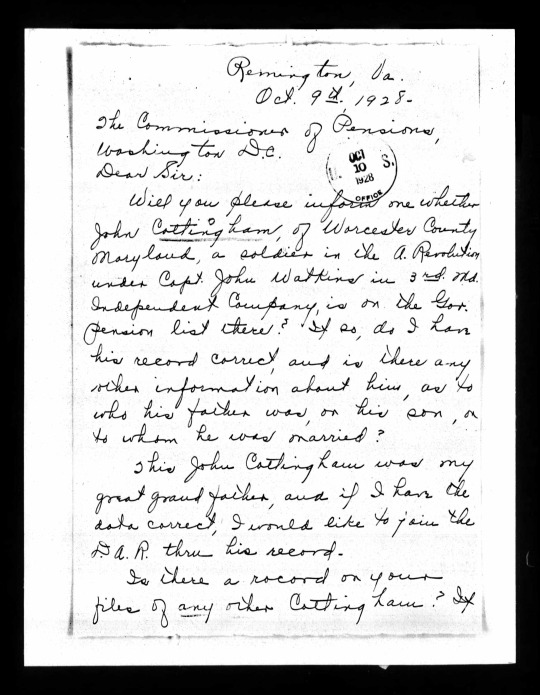 Remington, Va.
Oct. 9th, 1928-
The Commissioner of Pensions,
Washington D.C.
OCT
10
1928
S.
OFFICE
Dear Sir:
Will you please inform me whether
John Cottingham, of Worcester County
Maryland, a soldier in the A. Revolution
under Capt. John Watkins in 3rd. Md.
Independent Company, is on the Gov.
pension list there? If so, do I have
his record correct, and is there any
other information about him, as to
who his father was, or his son, or
to whom he was married?
This John Cottingham was my
great grand father, and if I have the
data correct, I would like to join the
D.A.R. thru his record-
Is there a rocord on your
files of any other Cottingham? If